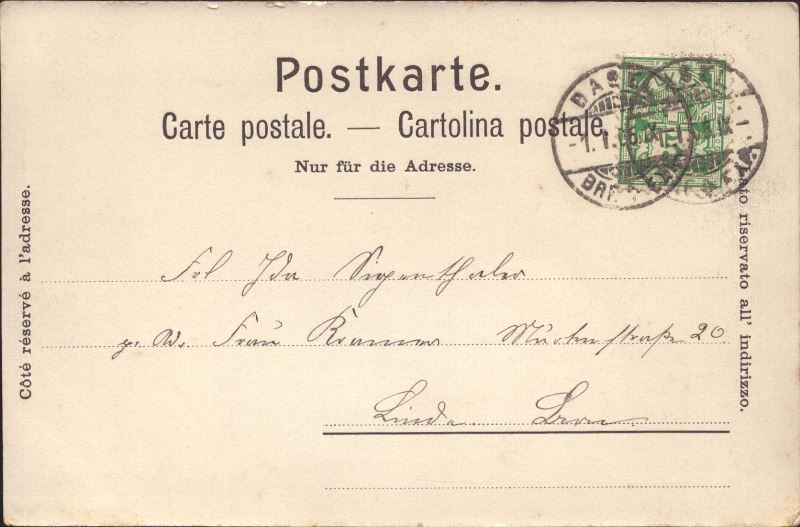 Postkarte.
Carte postale. — Cartolina postale.
Nur für die Adresse.
Côté réservé à l'adresse.
riservato all' indirizzo.
BASEL
Frl Ida Siegenthaler
p. Ad. Frau Kramer Murtenstraße 20
Bern